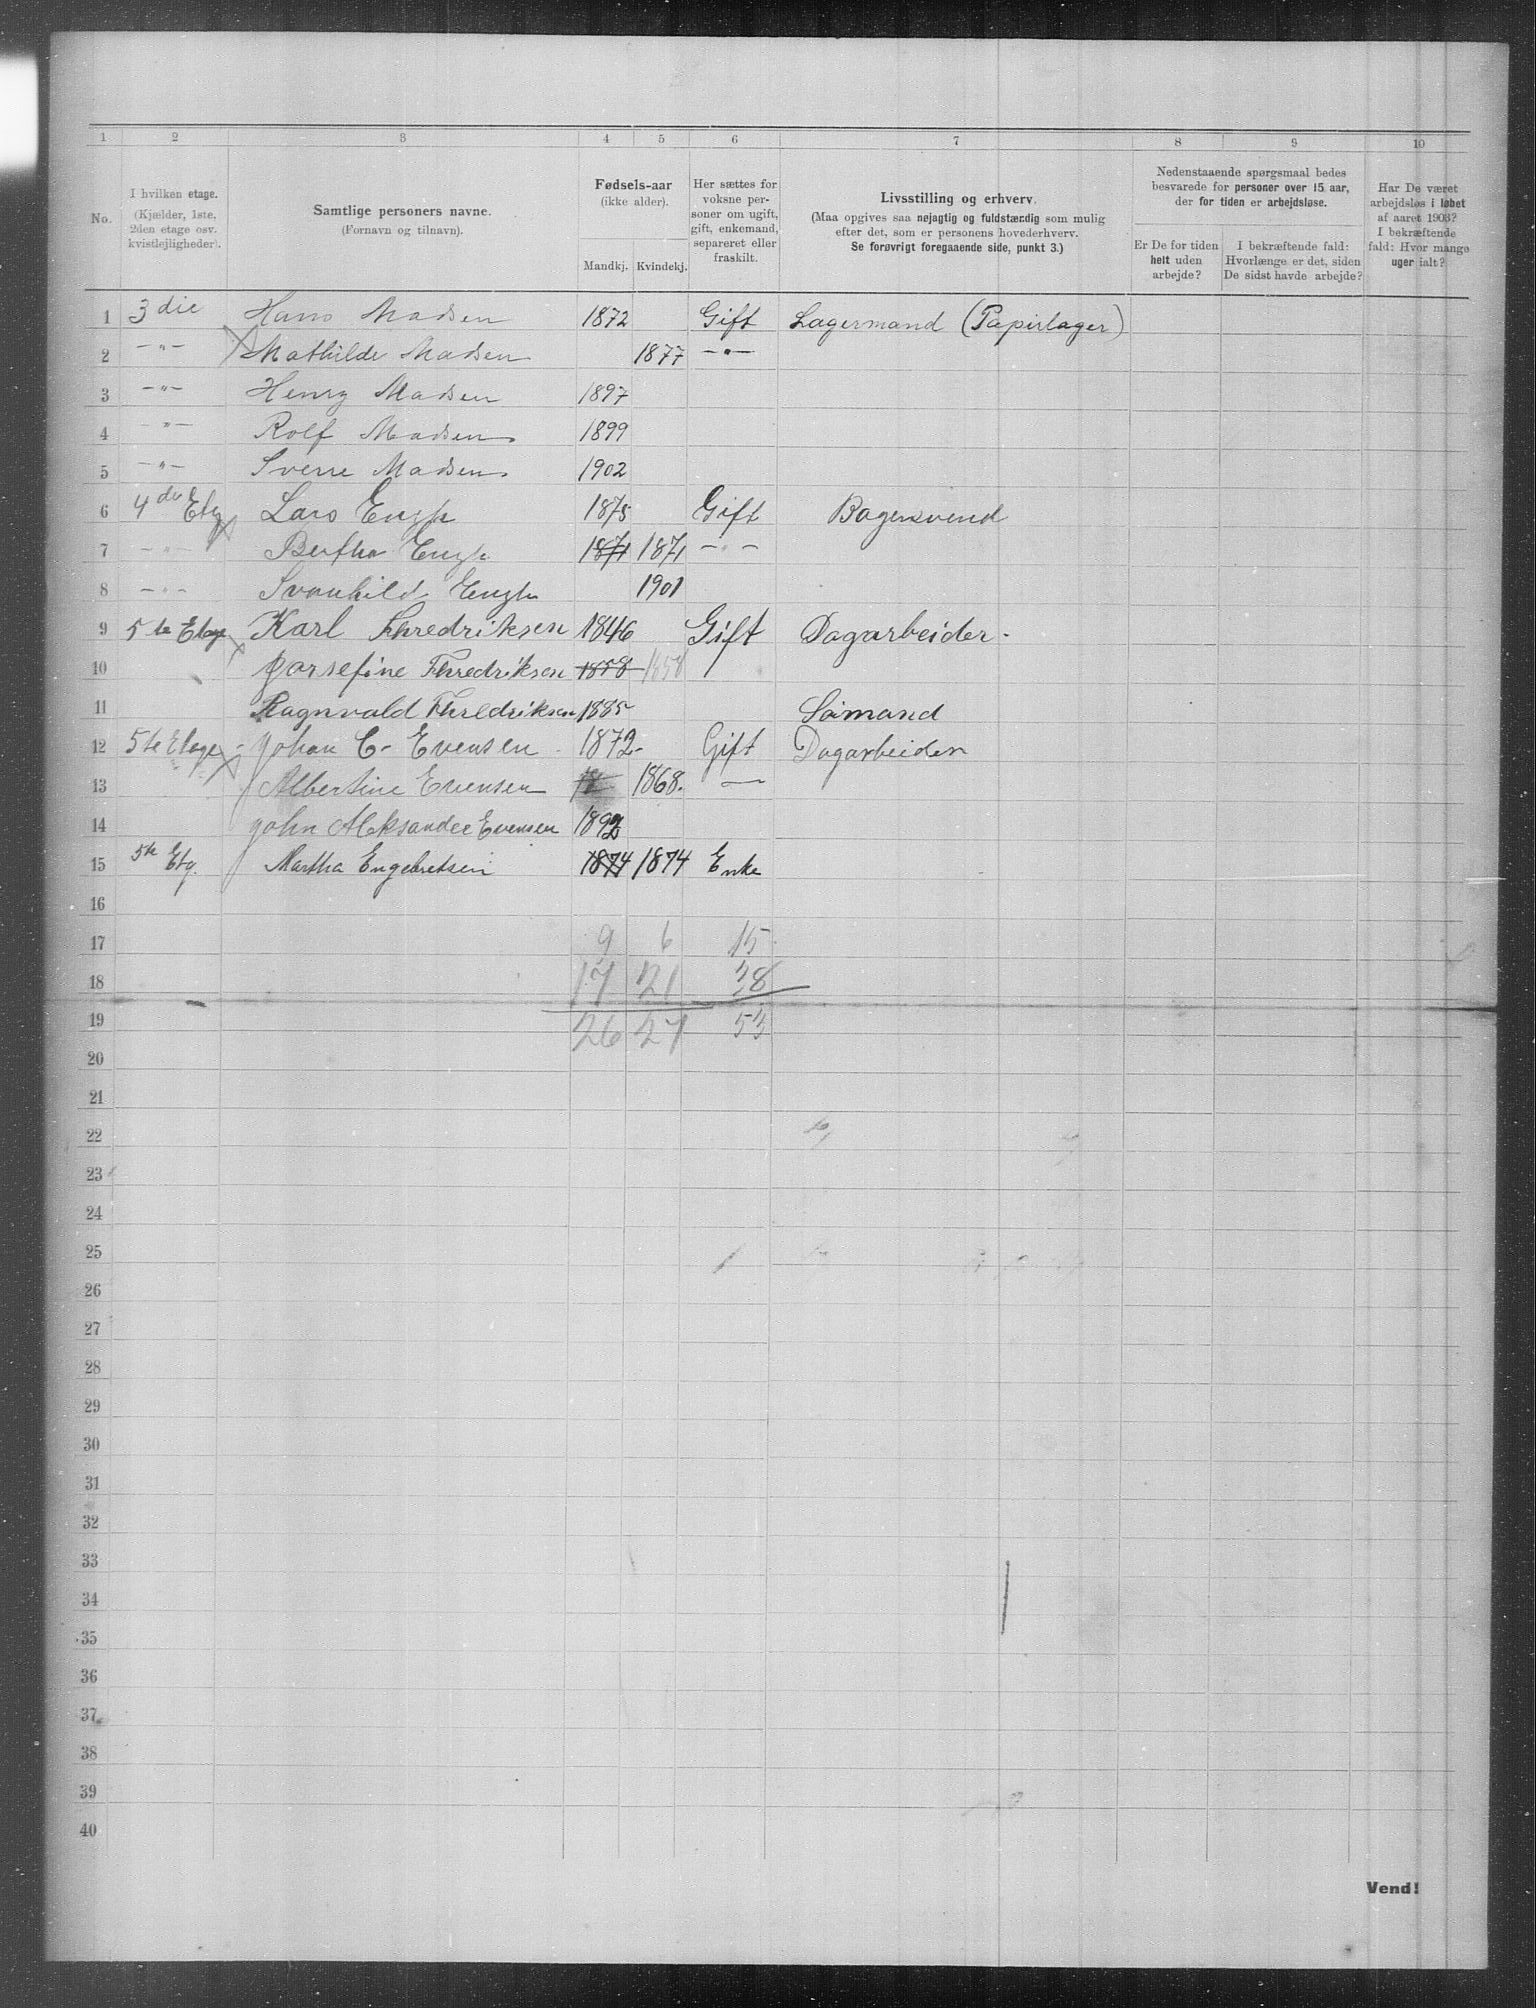 1 2 3 4 5 6 7 8 9 10
No.
I hvilken etage.
(Kjælder, 1ste,
2den etage osv.
kvistlejligheder).
Samtlige personers navne.
(Fornavn og tilnavn).
Fødsels-aar
(ikke alder).
Mandkj. Kvindekj.
Her sættes for
voksne per-
soner om ugift,
gift, enkemand,
separeret eller
fraskilt.
Livsstilling og erhverv.
(Maa opgives saa nøjagtig og fuldstændig som mulig
efter det, som er personens hovederhverv.
Se forøvrigt foregaaende side, punkt 3.)
Nedenstaaende spørgsmaal bedes
besvarede for personer over 15 aar,
der for tiden er arbejdsløse.
Er De for tiden
helt uden
arbejde?
I bekræftende fald:
Hvorlænge er det, siden
De sidst havde arbejde?
Har De været
arbejdsløs i løbet
af aaret 1903?
I bekræftende
fald: Hvor mange
uger ialt?
1 3die Hans Madsen 1872 Gift Lagermand (Papirlager)
2 -"- Mathilde Madsen 1877 -"-
3 -"- Henry Madsen 1897
4 -"- Rolf Madsen 1899
5 -"- Sverre Madsen 1902
6 4de Etg Lars Engh 1875 Gift Bagersvend
7 -"- Bertha Engh 1871 1871 -"-
8 -"- Svanhild Engh 1901
9 5te Etage Karl Fhredriksen 1846 Gift Dagarbeider.
10 Jorsefine Fhredriksen 1858 1858
11 Ragnvald Fhredriksen 1885 Sömand
12 5te Etage Johan C. Evensen 1872. Gift Dagarbeider
13 Albertine Evensen 18 1868. —
14 John Aleksander Evensen 1892
15 5te Etg. Martha Engebretsen 1874 1874 Enke
16
17 9 6 15
18 17 21 38
19 26 27 53
20
21
22
23
24
25
26
27
28
29
30
31
32
33
34
35
36
37
38
39
40
Vend!